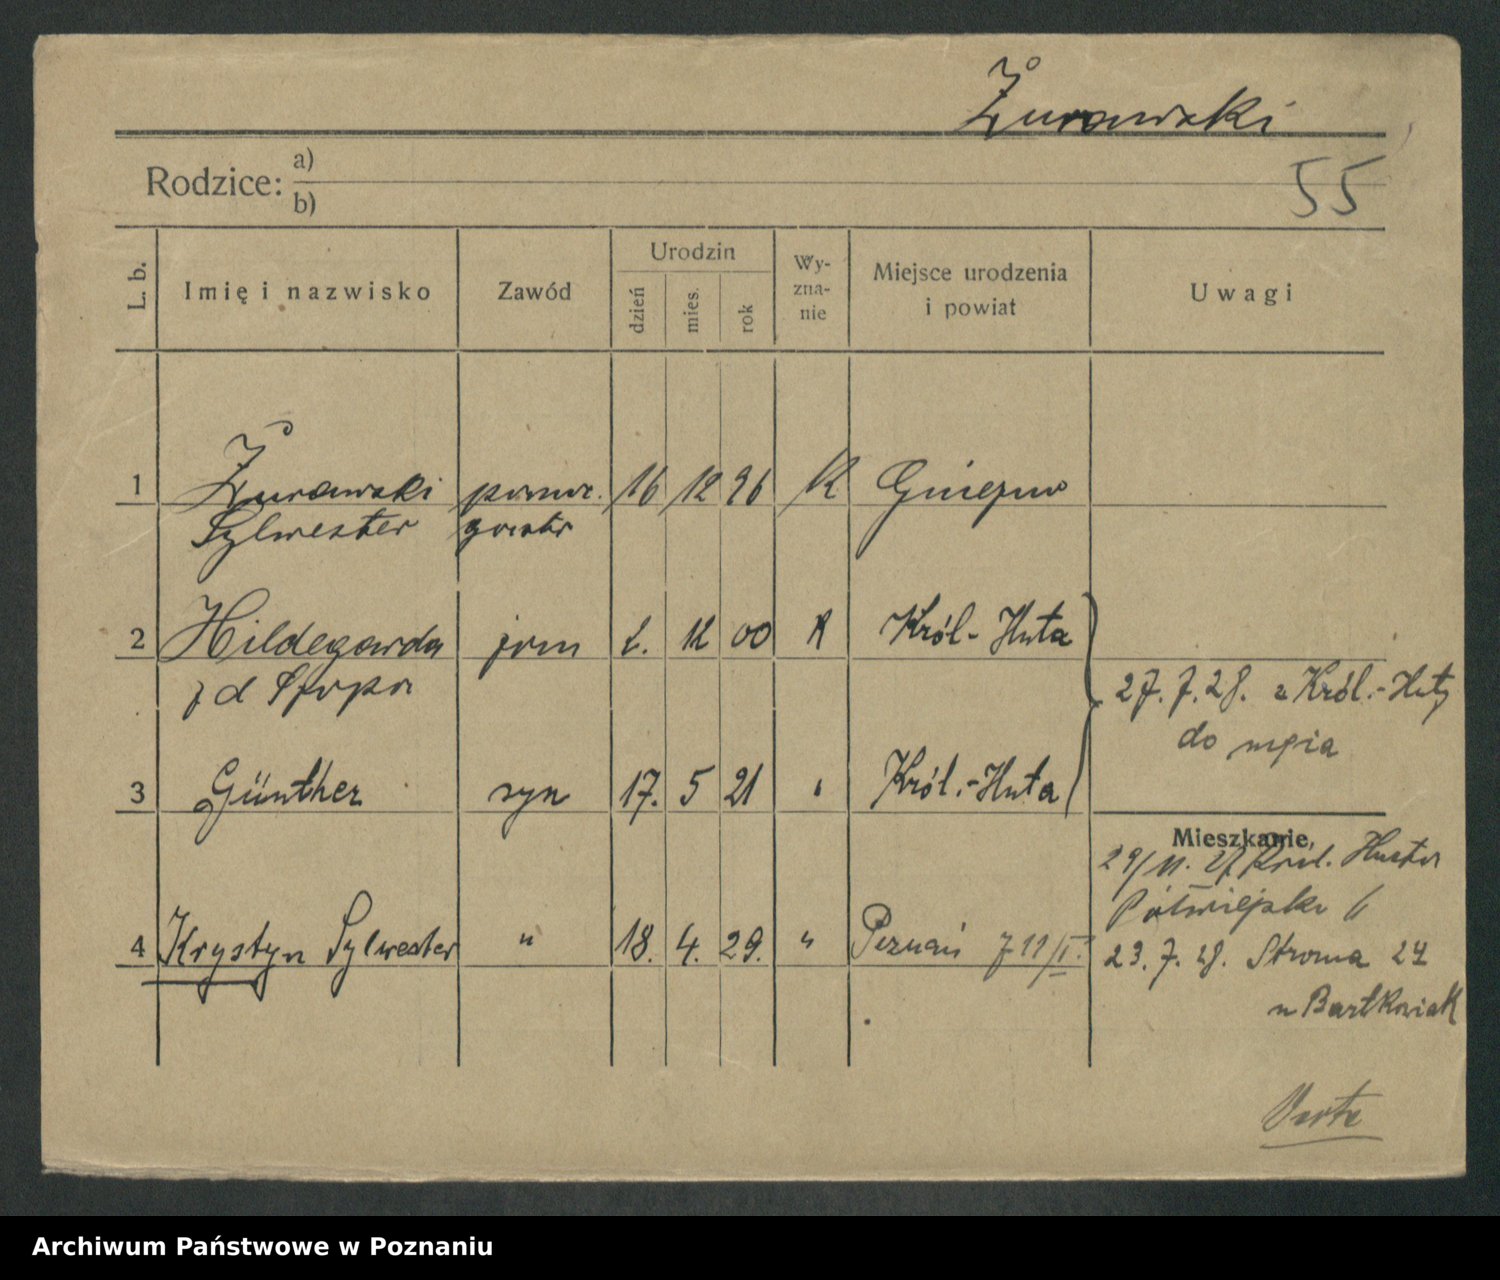 Żurawski
55
Rodzice: a)
b)
L. b.
Imię i nazwisko
Zawód
Urodzin
dzień
mies.
rok
Wy-
zna-
nie
Miejsce urodzenia
i powiat
Uwagi
1 Żurawski 16 12 96 K Gniezno
Sylwester
2 Hildegarda żona 2. 12 00 K Król- Huta
z d
27. 7. 28. z Król.- Huty
do męża
3 Günther syn 17. 5 21 " Król.-Huta
Mieszkanie,
29/11. 27 Król. Huta
Półwiejska 6
4 Krystyn Sylwester " 18. 4. 29. " Poznań
23. 7. 28. Stroma 24
u Bartkowiak
Verte
Archiwum Państwowe w Poznaniu